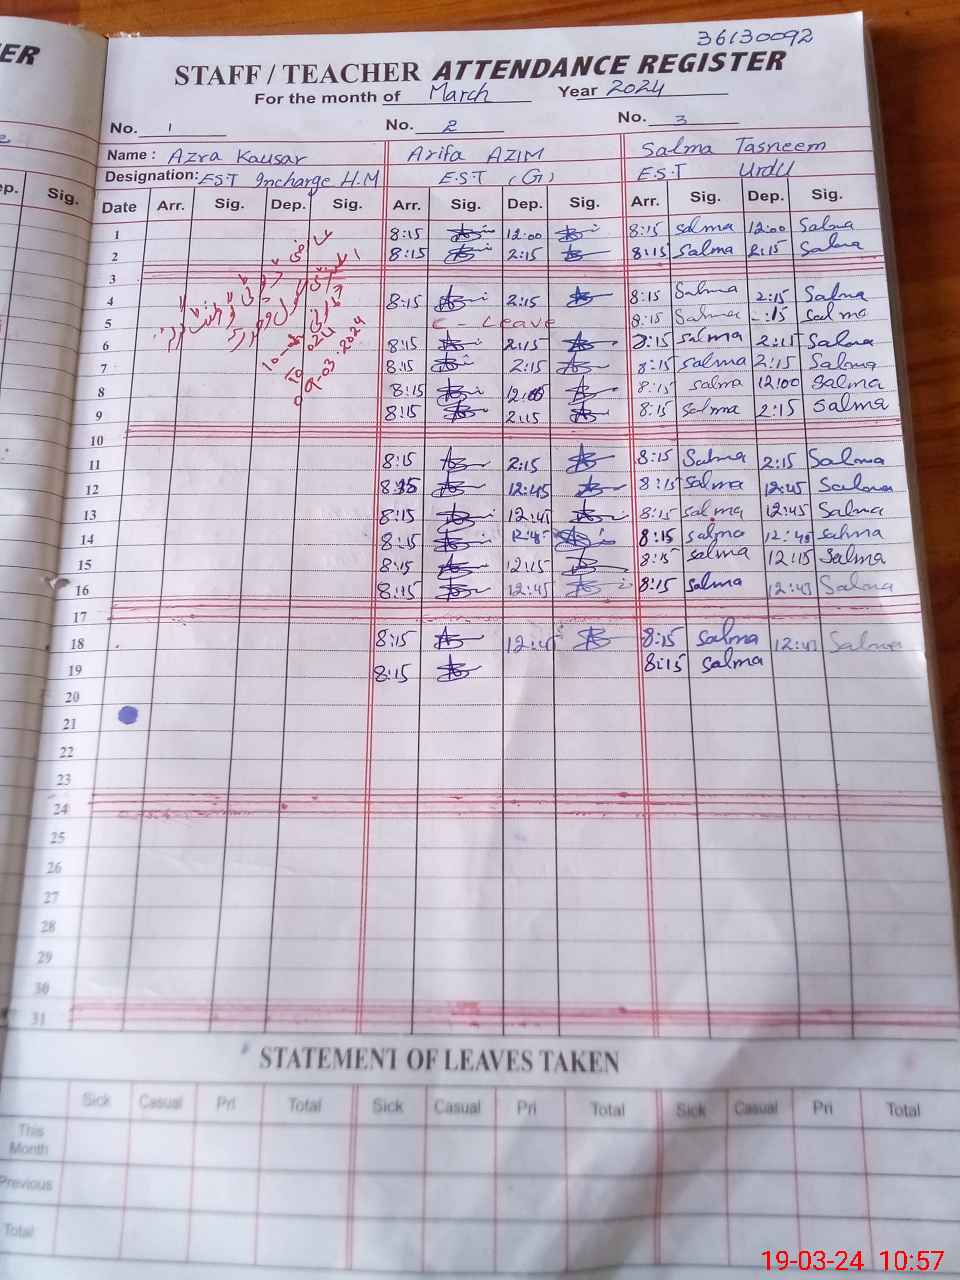 ER
36130092
STAFF / TEACHER ATTENDANCE REGISTER
For the month of March Year 2024
No. 1 No. 2 No. 3
Name : Azra Kausar Arifa AZIM Salma Tasneem
Designation: EST Incharge H.M E.S.T (G) E.S.T Urdu
ep. Sig. Date Arr. Sig. Dep. Sig. Arr. Sig. Dep. Sig. Arr. Sig. Dep. Sig.
1 8:15 12:00 8:15 salma 12:00 Salma
2 8:15 2:15 8:15 Salma 2:15 Salma
3
4 8:15 2:15 8:15 Salma 2:15 Salma
5 C - Leave 8:15 Salma :15 Salma
6 8:15 2:15 8:15 salma 2:15 Salma
7 8:15 2:15 8:15 salma 2:15 Salma
8 8:15 8:15 salma 12:00 Salma
9 8:15 2:15 8:15 salma 2:15 Salma
09-03-2024
10
11 8:15 2:15 8:15 Salma 2:15 Salma
12 12:45 8:15 salma 12:45 Salma
13 8:15 12:45 8:15 salma 12:45 Salma
14 8:15 12:45 8:15 salma 12:45 salma
15 8:15 12:15 8:15 salma 12:15 Salma
16 8:15 12:45 8:15 salma Salma
17
18 8:15 12:45 8:15 Salma Salma
19 8:15 8:15 salma
20
21
22
23
24
25
26
27
28
29
30
31
STATEMENT OF LEAVES TAKEN
Sick Casual Pri Total Sick Casual Pri Total Sick Casual Pri Total
This
Month
Previous
Total
19-03-24 10:57